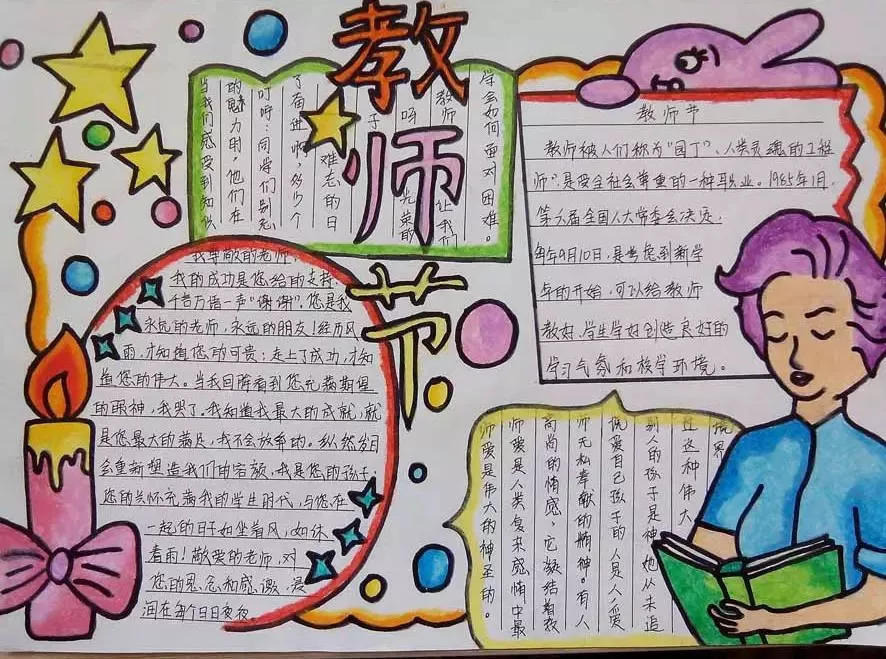 教
师
节
当我们感受到知识
的魅力时,他们在
叮咛:同学们别忘
了奋进啊,多少个
难忘的日
子
呀
教师 光荣的
让我们
学会如何面对困难。
教师节
教师被人们称为“园丁”、人类灵魂的工程
师”,是受全社会尊重的一种职业。1985年1月,
第六届全国人大常委会决定,
每年9月10日,是考虑到新学
年的开始,可以给教师
教好、学生学好创造良好的
学习气氛和校学环境。
我尊敬的老师,
我的成功是您给的支持,
千言万语一声“谢谢”.您是我
永远的老师,永远的朋友!经历风
雨,才知道您的可贵;走上了成功,才知
道您的伟大。当我回眸看到您充满期望
的眼神,我哭了.我知道我最大的成就,就
是您最大的满足,我不会放弃的。纵然岁月
会重新塑造我们的容颜,我是您的孩子;
您的关怀充满我的学生时代,与您在
一起的日子如坐着风,如沐
春雨!敬爱的老师,对
您的思念和感激,浸
润在每个日日夜夜.
师爱是伟大的神圣的。
师爱是人类复杂感情中最
高尚的情感,它凝结着教
师无私奉献的精神。有人
说爱自己孩子的人是人,爱
别人的孩子是神,她从未追
过这种伟大